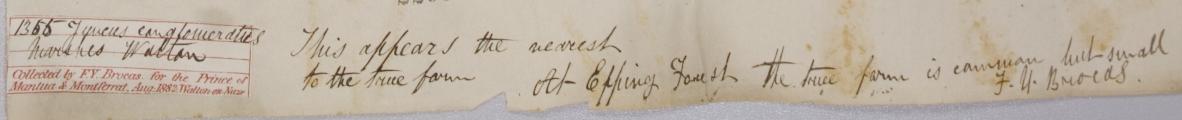 1355 Juncus conglomeratus
Marshes Walton
Collected by F.Y. Brocas. for the Prince of
Mantua & Montferrat, Aug. 1882. Walton on Naze
This appears the nearest
to the true form
At Epping Forest the true form is common but small
F. Y. Brocas.